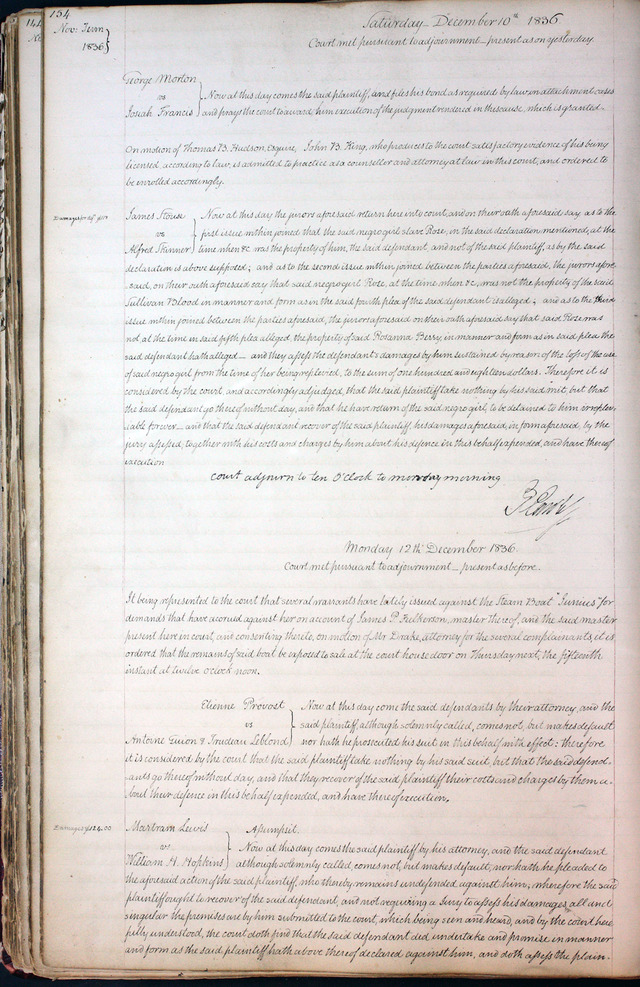 154
Nov: Term
1836
Saturday December 10th 1836
Court met pursuant to adjournment – present as on yesterday.
George Morton
vs
Josiah Francis
Now at this day comes the said plaintiff, and files his bond as required by law in attachment cases
and prays the court to award him execution of the judgment rendered in this cause, which is granted.
On motion of Thomas B. Hudson, Esquire, John B. King, who produces to the court satisfactory evidence of his being
licensed according to law, is admitted to practice as a counsellor and attorney at law in this court, and ordered to
be enrolled accordingly.
James Stouse
vs
Alfred Skinner
Now at this day the jurors aforesaid return here into court, and on their oath aforesaid say as to the
first issue within joined that the said negro girl slave Rose, in the said declaration mentioned, at the
time when &c was the property of him, the said defendant and not of the said plaintiff, as by the said
declaration is above supposed; and as to the second issue within joined between the parties aforesaid, the jurors afore
said, on their oath aforesaid say that said negro girl Rose, at the time when &c, was not the property of the said
Sullivan Blood in manner and form as in the said fourth plea of the said defendant is alleged; and as to the third
issue within joined between the parties aforesaid, the jurors aforesaid on their oath aforesaid say that said Rose was
not at the time in said fifth plea alleged, the property of said Rosanna Berry, in manner and form as in said plea the
said defendant hath alleged – and they assess the defendant's damages by him sustained by reason of the loss of the use
of said negro girl from the time of her being replevied, to the sum of one hundred and eighteen dollars. Therefore it is
considered by the court and accordingly adjudged, that the said plaintiff take nothing by his said writ, but that
the said defendant go thereof without day, and that he have return of the said negro girl, to be detained to him irreplev-
iable forever – and that the said defendant recover of the said plaintiff, his damages aforesaid, in form aforesaid, by the
jury assessed, together with his costs and charges by him about his defence in this behalf expended, and have thereof
execution
Court adjourn to ten O'Clock to monday morning
Monday 12th December 1836.
Court met pursuant to adjournment – present as before.
It being represented to the court that several warrants have lately issued against the Steam Boat "Junius" for
demands that have accrued against her on account of James P. Fulkerson, master thereof, and the said master
present here in court, and consenting thereto, on motion of Mr Drake, attorney for the several complainants, it is
ordered that the remains of said boat be exposed to sale at the court house door on Thursday next, the fifteenth
instant at twelve o'clock noon.
Etienne Provost
vs
Antoine Guion & Trudeau Leblond
Now at this day come the said defendants by their attorney, and the
said plaintiff, although solemnly called, comes not, but makes default
nor hath he prosecuted his suit in this behalf with effect: therefore
it is considered by the court that the said plaintiff take nothing by his said suit, but that the said defend-
ants go thereof without day, and that they recover of the said plaintiff their costs and charges by them a-
bout their defence in this behalf expended, and have thereof execution.
Martram Lewis
vs
William H. Hopkins
Assumpsit.
Now at this day comes the said plaintiff by his attorney, and the said defendant
although solemnly called, comes not, but makes default, nor hath he pleaded to
the aforesaid action of the said plaintiff, who thereby remains undefended against him, wherefore the said
plaintiff ought to recover of the said defendant, and not requiring a Jury to assess his damages, all and
singular the premises are by him submitted to the court, which being seen and heard, and by the court here
fully understood, the court doth find that the said defendant did undertake and promise in manner
and form as the said plaintiff hath above thereof declared against him, and doth assess the plain-